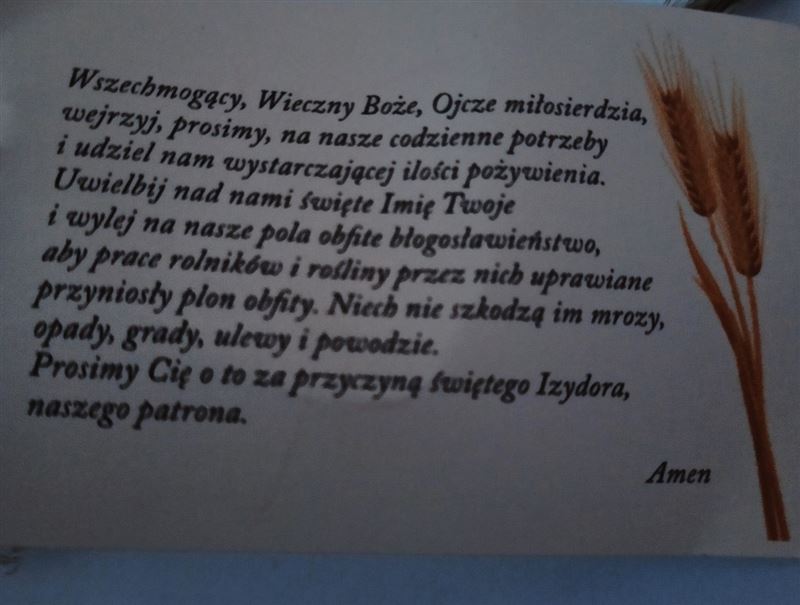 Wszechmogący, Wieczny Boże, Ojcze miłosierdzia,
wejrzyj, prosimy, na nasze codzienne potrzeby
i udziel nam wystarczającej ilości pożywienia.
Uwielbij nad nami święte Imię Twoje
i wylej na nasze pola obfite błogosławieństwo,
aby prace rolników i rośliny przez nich uprawiane
przyniosły plon obfity. Niech nie szkodzą im mrozy,
opady, grady, ulewy i powodzie.
Prosimy Cię o to za przyczyną świętego Izydora,
naszego patrona.
Amen